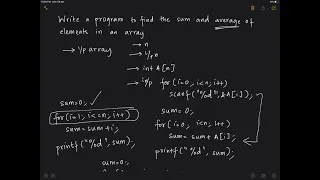 Write a program to find the sum and average of
elements in an array
→ i/p array
→ n
→ i/p n
→ int A[n]
→ i/p for (i=0; i<n; i++)
scanf("%d", &A[i]);
sum=0;
for(i=1; i<=n; i++)
sum = sum+i;
printf("%d", sum);
sum=0;
sum = 0;
for (i=0; i<n; i++)
sum = sum + A[i];
printf("%d", sum);